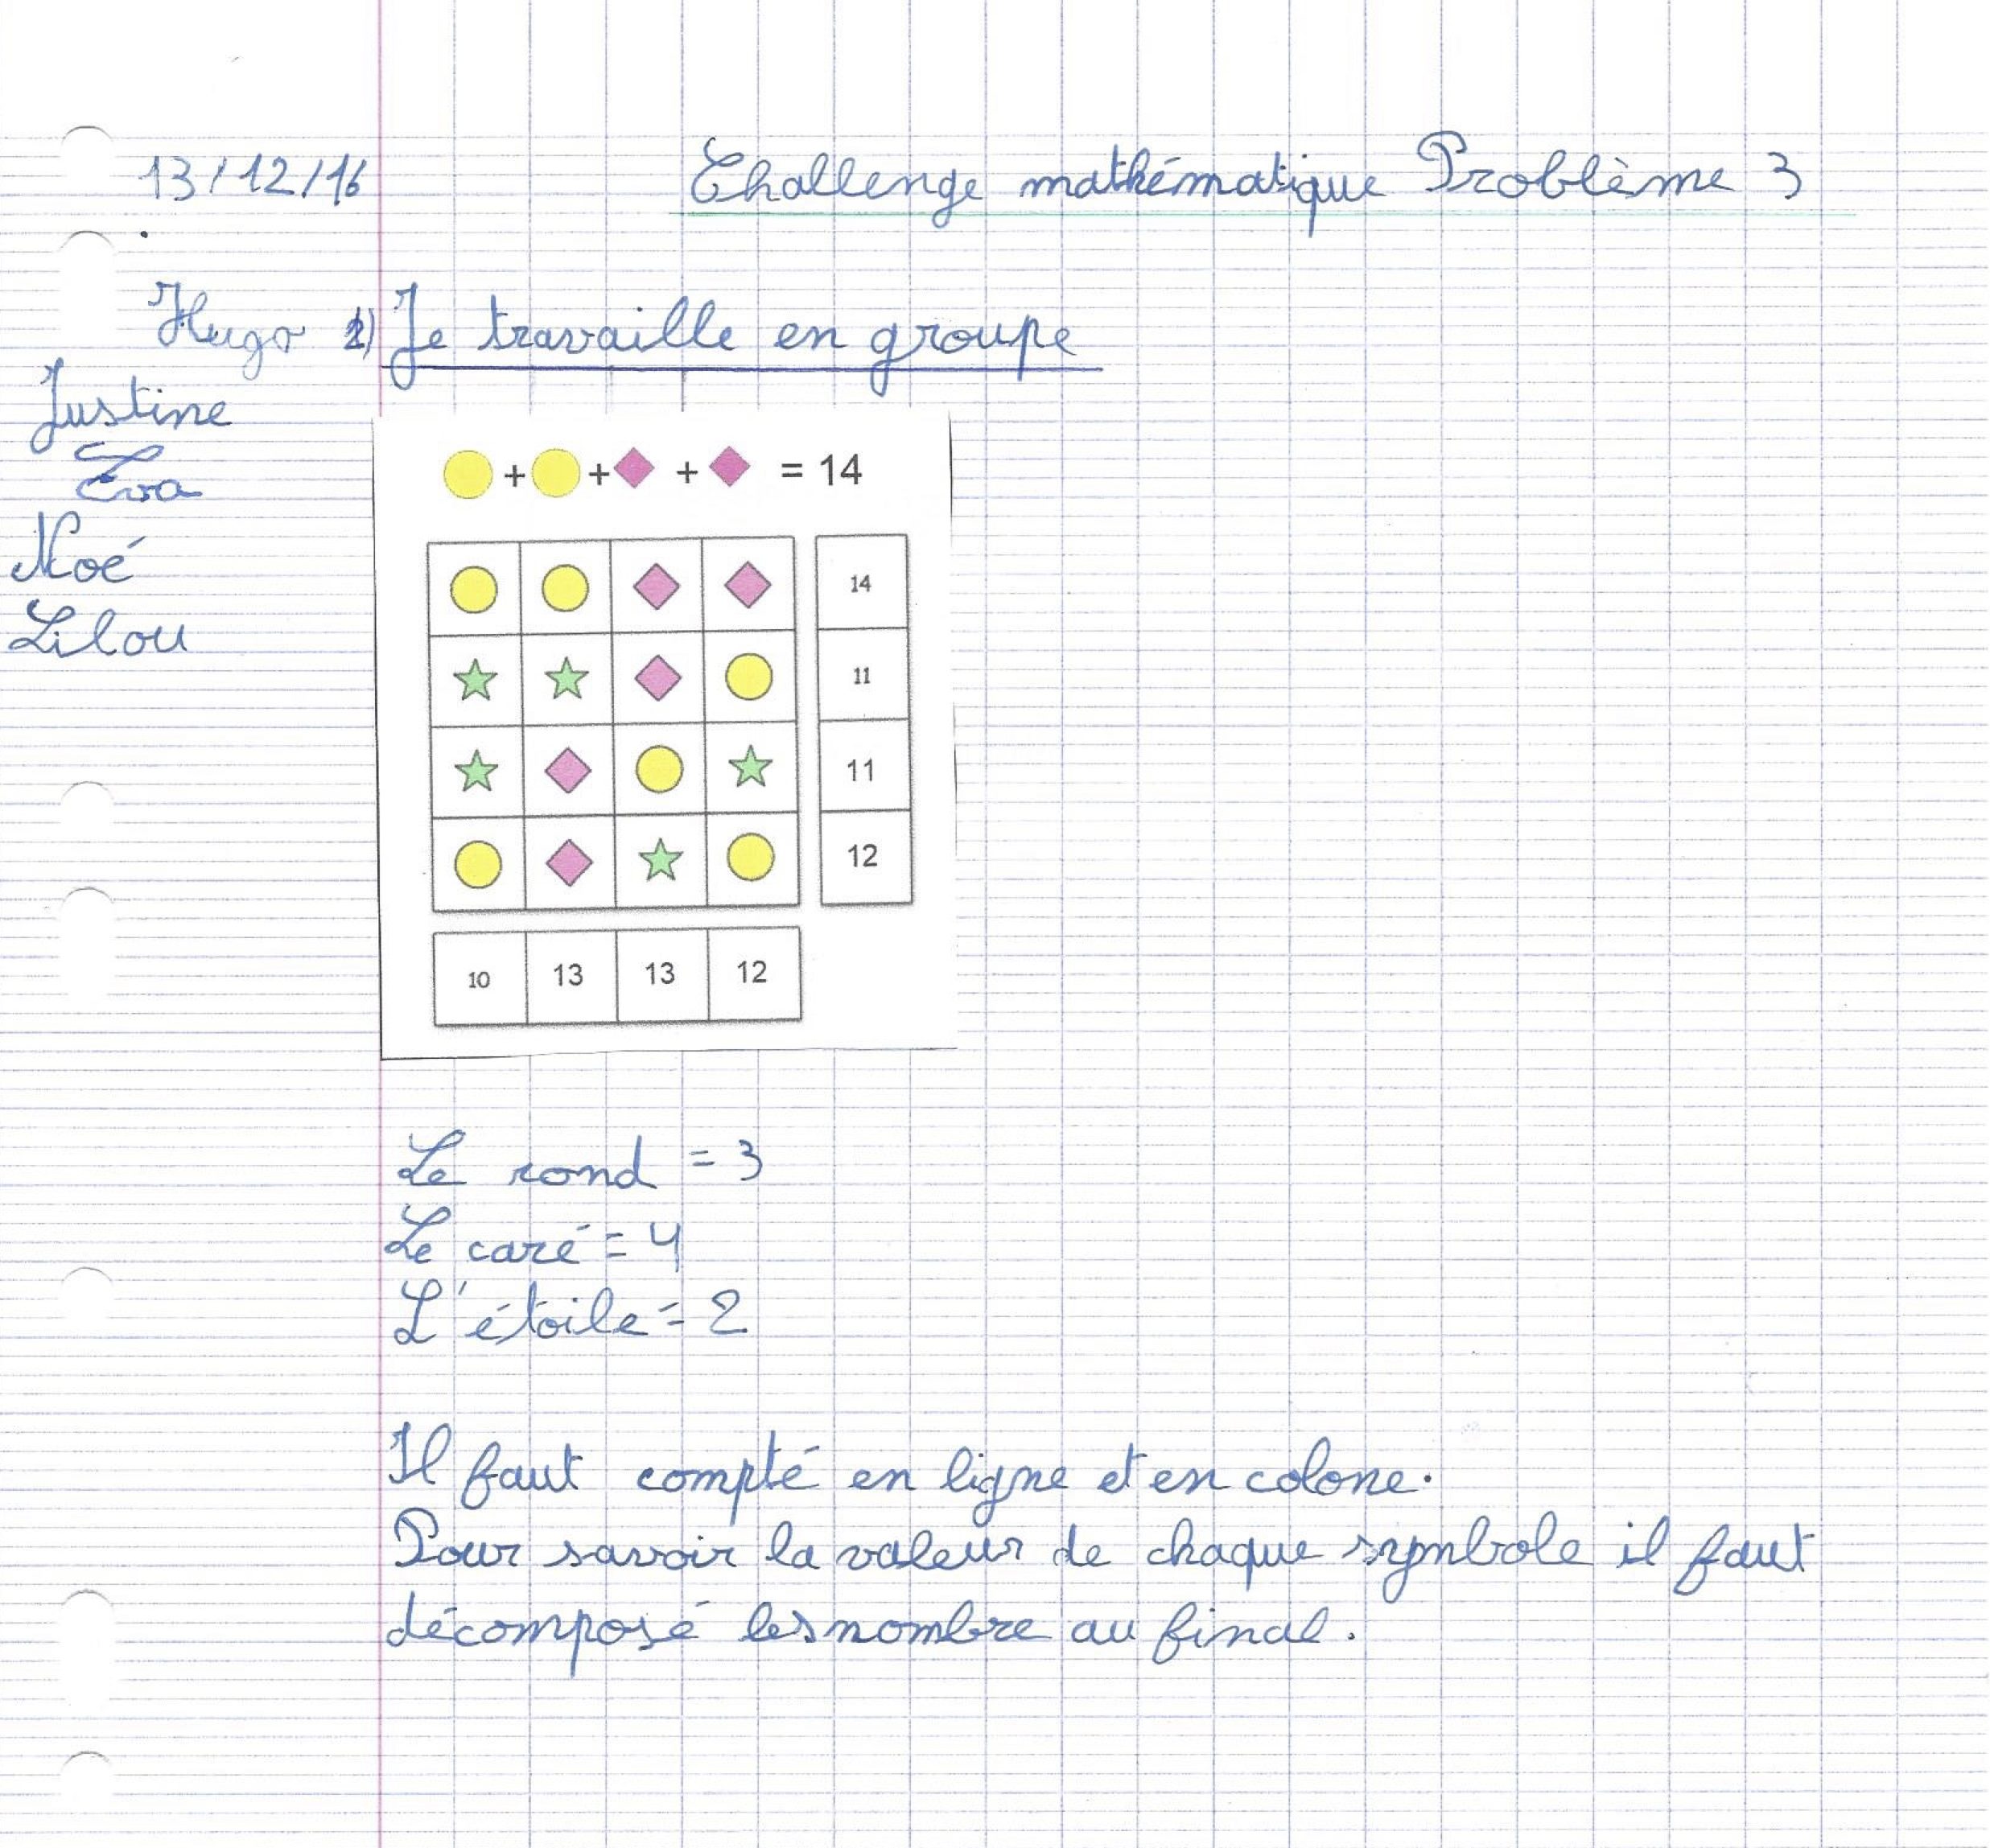 13/12/16
Challenge mathématique Problème 3
Hugo 2) Je travaille en groupe
Justine
Eva
Noé
Lilou
+ + + = 14
14
11
11
12
10 13 13 12
Le rond = 3
Le caré = 4
L'étoile = 2
Il faut compté en ligne et en colone.
Pour savoir la valeur de chaque symbole il faut
décomposé les nombre au final.